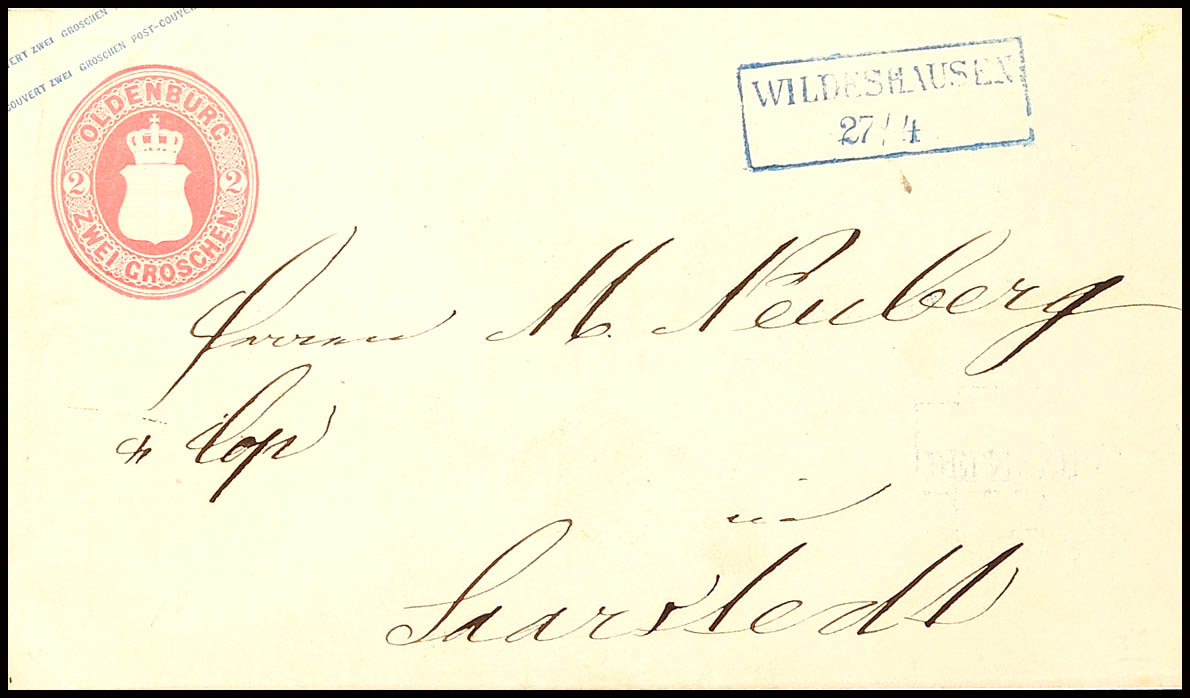 VERT ZWEI GROSCHEN
COUVERT ZWEI GROSCHEN POST-COUVER
OLDENBURG
2 2
ZWEI GROSCHEN
WILDESHAUSEN
27/4
Herren M. Neuberg
& Cop
in
Saarstedt